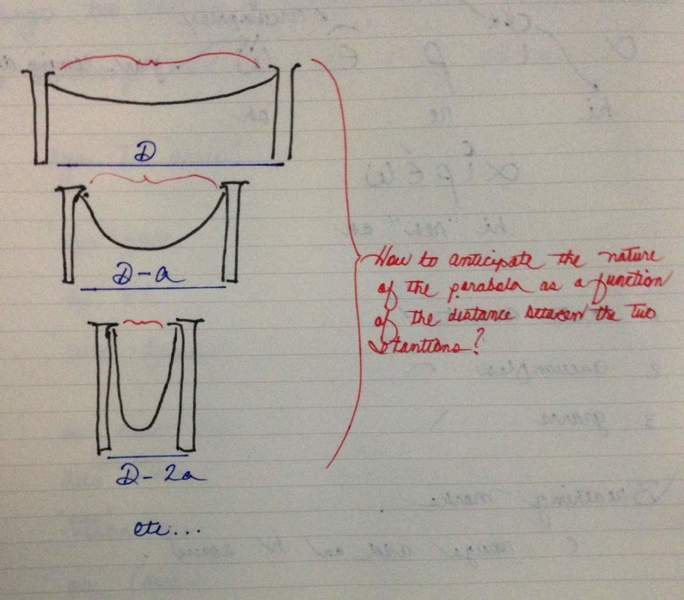 D
D-a
How to anticipate the nature
of the parabola as a function
of the distance between the two
stantions?
D-2a
etc...